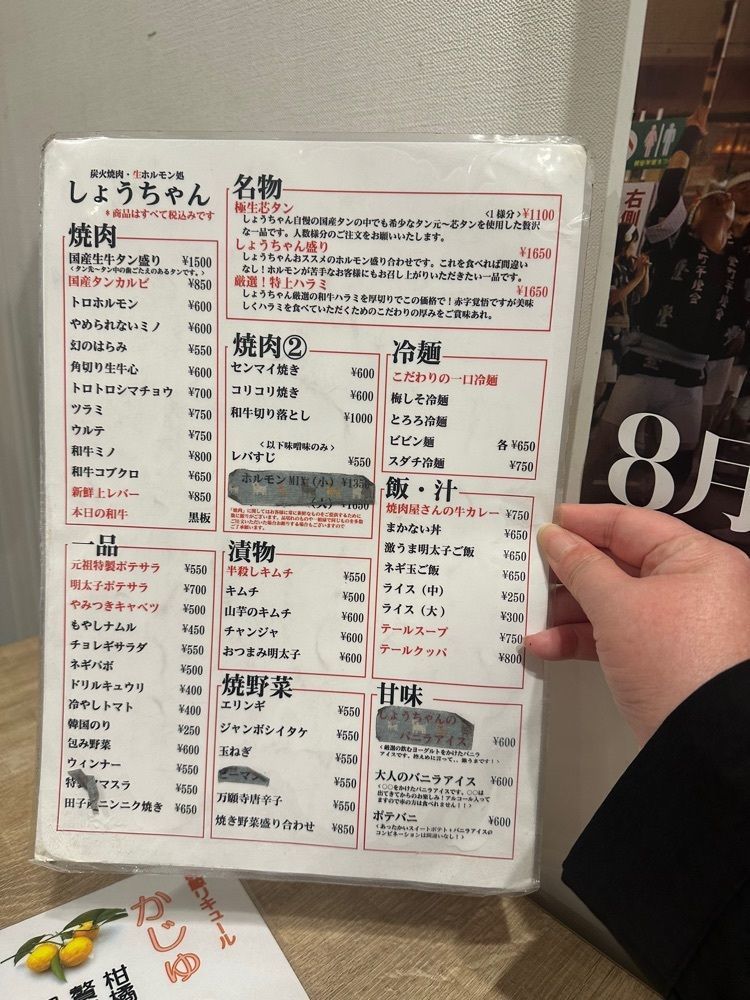 炭火焼肉・生ホルモン処
しょうちゃん
*商品はすべて税込みです
焼肉
国産生牛タン盛り ¥1500
<タン先~タン中の歯ごたえのあるタンです。>
国産タンカルビ ¥850
トロホルモン ¥600
やめられないミノ ¥600
幻のはらみ ¥550
角切り生牛心 ¥600
トロトロシマチョウ ¥700
ツラミ ¥750
ウルテ ¥750
和牛ミノ ¥800
和牛コブクロ ¥650
新鮮上レバー ¥850
本日の和牛 黒板
名物
極生芯タン <1様分>¥1100
しょうちゃん自慢の国産タンの中でも希少なタン元~芯タンを使用した贅沢
な一品です。人数様分のご注文をお願いいたします。
しょうちゃん盛り ¥1650
しょうちゃんおススメのホルモン盛り合わせです。これを食べれば間違い
なし!ホルモンが苦手なお客様にもお召し上がりいただきたい一品です。
厳選!特上ハラミ ¥1650
しょうちゃん厳選の和牛ハラミを厚切りでこの価格で!赤字覚悟ですが美味
しくハラミを食べていただくためのこだわりの厚みをご賞味あれ。
焼肉②
センマイ焼き ¥600
コリコリ焼き ¥600
和牛切り落とし ¥1000
<以下味噌味のみ>
レバすじ ¥550
ホルモンMIX(小) ¥1350
(大) ¥1650
冷麺
こだわりの一口冷麺
梅しそ冷麺
とろろ冷麺
ビビン麺 各 ¥650
スダチ冷麺 ¥750
飯・汁
焼肉屋さんの牛カレー ¥750
まかない丼 ¥650
激うま明太子ご飯 ¥650
ネギ玉ご飯 ¥650
ライス(中) ¥250
ライス(大) ¥300
テールスープ ¥750
テールクッパ ¥800
一品
元祖特製ポテサラ ¥550
明太子ポテサラ ¥700
やみつきキャベツ ¥500
もやしナムル ¥450
チョレギサラダ ¥550
ネギバボ ¥500
ドリルキュウリ ¥400
冷やしトマト ¥400
韓国のり ¥250
包み野菜 ¥600
ウィンナー ¥550
特製 マスラ ¥550
田子産ニンニク焼き ¥650
漬物
半殺しキムチ ¥550
キムチ ¥500
山芋のキムチ ¥600
チャンジャ ¥600
おつまみ明太子 ¥600
焼野菜
エリンギ ¥550
ジャンボシイタケ ¥550
玉ねぎ ¥550
ピーマン ¥550
万願寺唐辛子 ¥550
焼き野菜盛り合わせ ¥850
甘味
しょうちゃんの
バニラアイス ¥600
<厳選の飲むヨーグルトをかけたバニラ
アイスです。控えめに言って、、激うまです!>
大人のバニラアイス ¥600
<○○をかけたバニラアイスです。○○は
出てきてからのお楽しみ!アルコール入って
ますので車の方は食べれません!!>
ポテバニ ¥600
<あったかいスイートポテト+バニラアイスの
コンビネーションは間違いなし!>
右側
8月
リキュール
かじゅ
柑橘